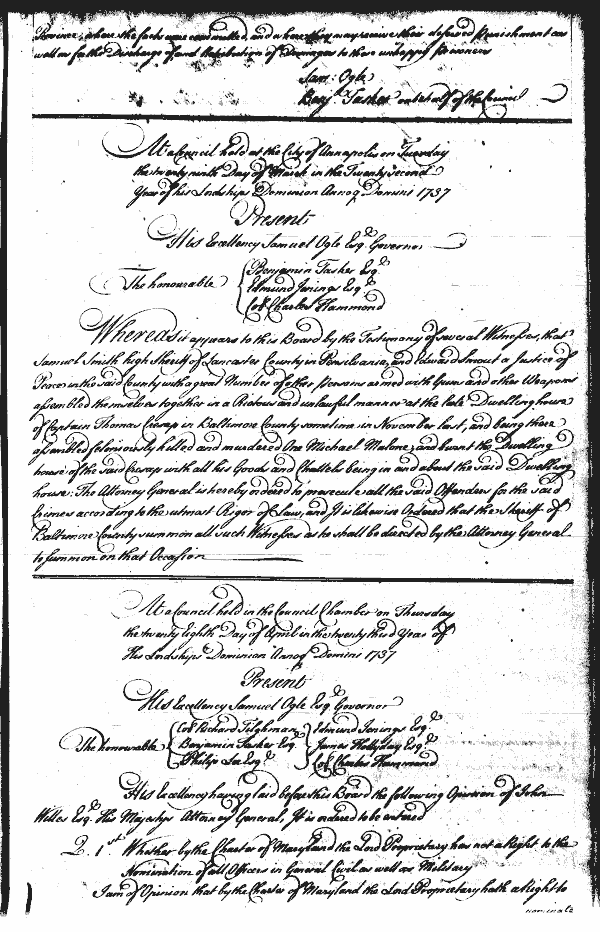 Province, where the facts were committed, and where they may receive their deserved Punishment as
well as for the Discharge of and Retribution of Damages to those unhappy Prisoners
Sam: Ogle
Benj.ᵃ Tasker on behalf of the Council
At a Council held at the City of Annapolis on Tuesday
the twenty ninth Day of March in the Twenty second
Year of his Lordships Dominion Annoq Domini 1737
Present
His Excellency Samuel Ogle Esqʳ Governor
The honourable
Benjamin Tasker Esqʳ
Edmund Jenings Esqʳ
Colˡ Charles Hammond
Whereas it appears to this Board by the Testimony of several Witnesses, that
Samuel Smith high Sheriff of Lancaster County in Pensilvania, and Edward Smout a Justice of
Peace in the said County with a great Number of other Persons armed with Guns and other Weapons
assembled themselves together in a Riotous and unlawful manner at the late Dwelling house
of Captain Thomas Cresap in Baltimore County sometime in November last, and being there
assembled feloniously killed and murdered One Michael Malone, and burnt the Dwelling
house of the said Cresap with all his Goods and Chattels being in and about the said Dwelling
house; The Attorney General is hereby ordered to prosecute all the said Offenders for the said
Crimes according to the utmost Rigor of Law, and It is likewise Ordered that the Sheriff of
Baltimore County summon all such Witnesses as he shall be directed by the Attorney General
to summon on that Occasion
At a Council held in the Council Chamber on Thursday
the twenty Eighth Day of April in the twenty third Year of
His Lordships Dominion Annoq Domini 1737
Present
His Excellency Samuel Ogle Esqʳ Governor
The honourable
Colˡ Richard Tilghman
Benjamin Tasker Esqʳ
Philip Lee Esqʳ
Edmund Jenings Esqʳ
James Hollyday Esqʳ
Colˡ Charles Hammond
His Excellency having laid before this Board the following Opinion of John
Willes Esqʳ His Majestys Attorney General, It is ordered to be entered
Q. 1ˢᵗ Whether by the Charter of Maryland the Lord Proprietary has not a Right to the
Nomination of all Officers in General Civil as well as Military
I am of Opinion that by the Charter of Maryland the Lord Proprietary hath a Right to
nominate